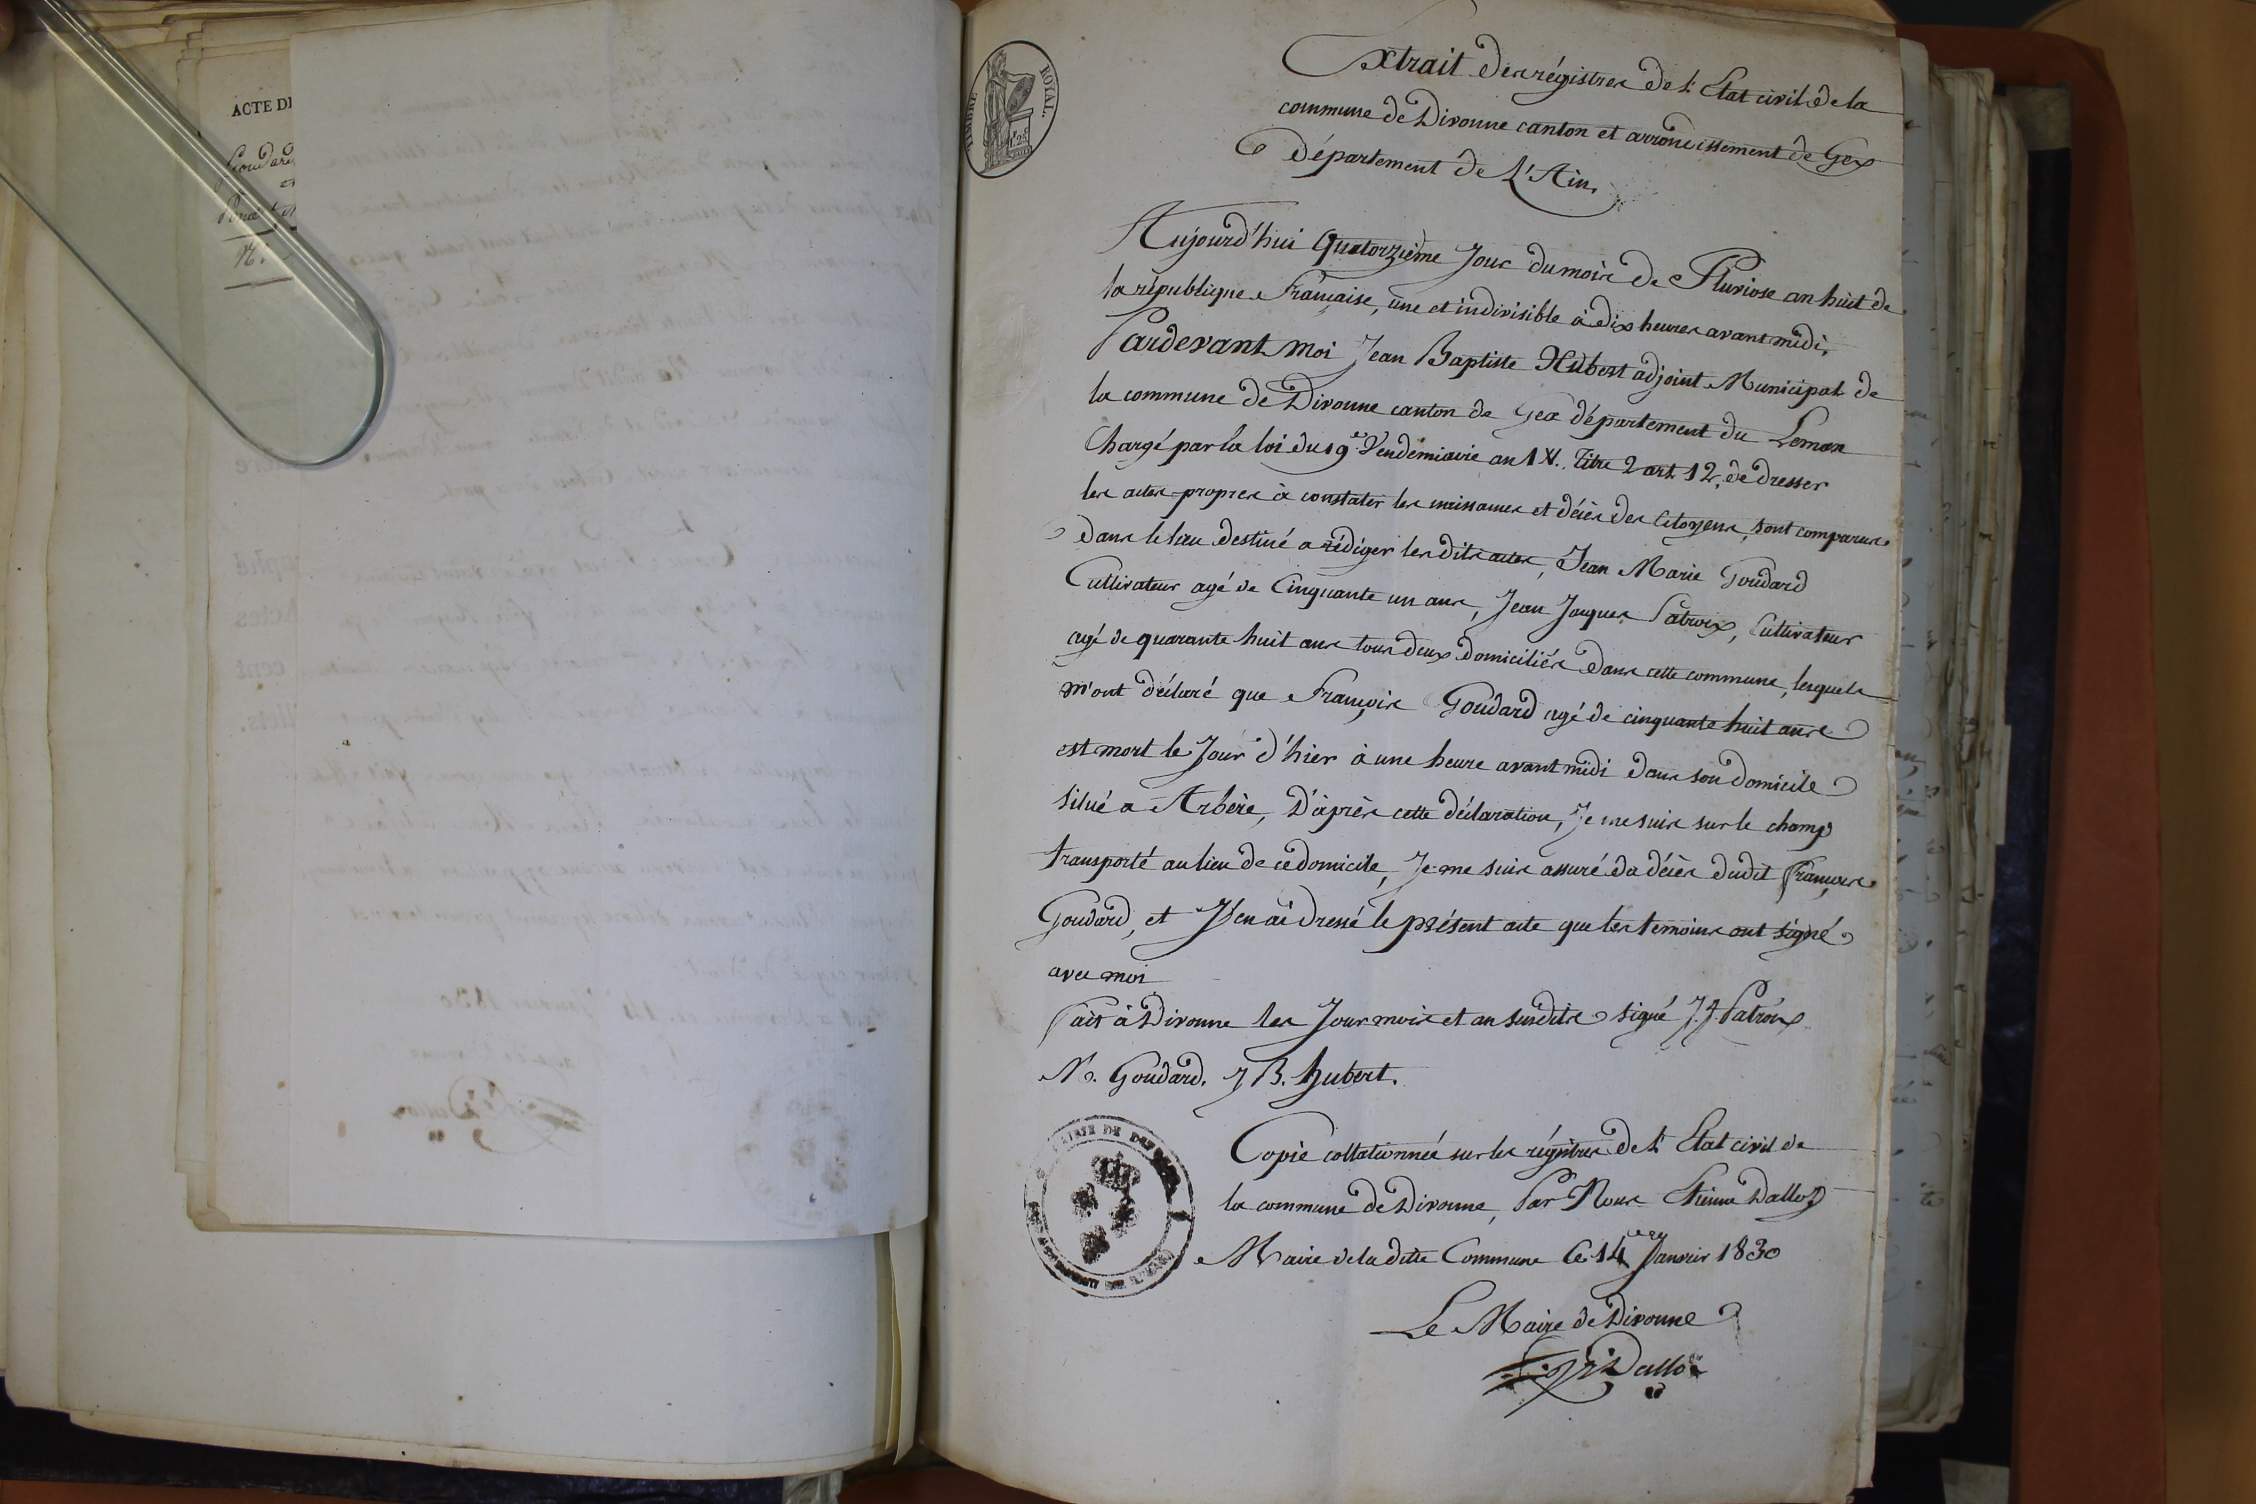 ACTE DE
TIMBRE ROYAL.
Extrait des régistres de l'Etat civil de la
commune de Divonne canton et arrondissement de Gex
Département de L'Ain.
Aujourd'hui Quatorzième Jour du mois de Pluviose an huit de
la république Française, une et indivisible à dix heures avant midi,
Pardevant Moi Jean Baptiste Hubert adjoint Municipal de
la commune de Divonne canton de Gex département du Leman
Chargé par la loi du 19e Vendemiaire an IV. Titre 2 art 12, de dresser
les actes propres à constater les naissances et décès des Citoyens, sont comparus
dans le lieu destiné a rédiger les dits actes, Jean Marie Goudard
Cultivateur agé de Cinquante un ans, Jean Jaques Patroix, Cultivateur
agé de quarante huit ans tous deux domiciliés dans cette commune, lesquels
m'ont déclaré que François Goudard agé de cinquante huit ans
est mort le Jour d'hier à une heure avant midi dans son domicile
situé a Arbère, D'après cette déclaration, Je me suis sur le champ
transporté au lieu de ce domicile, Je me suis assuré du décès dudit François
Goudard, et J'en ai dressé le présent acte que les temoins ont signé
avec moi
Fait à Divonne les Jour mois et an susdits signé J. J. Patroix
M. Goudard. J B. hubert.
Copie collationnée sur les régistres de l'Etat civil de
la commune de Divonne, Par Nous Etienne Dalloz
Maire de la dite Commune le 14 Janvier 1830
Le Maire de Divonne
Dalloz